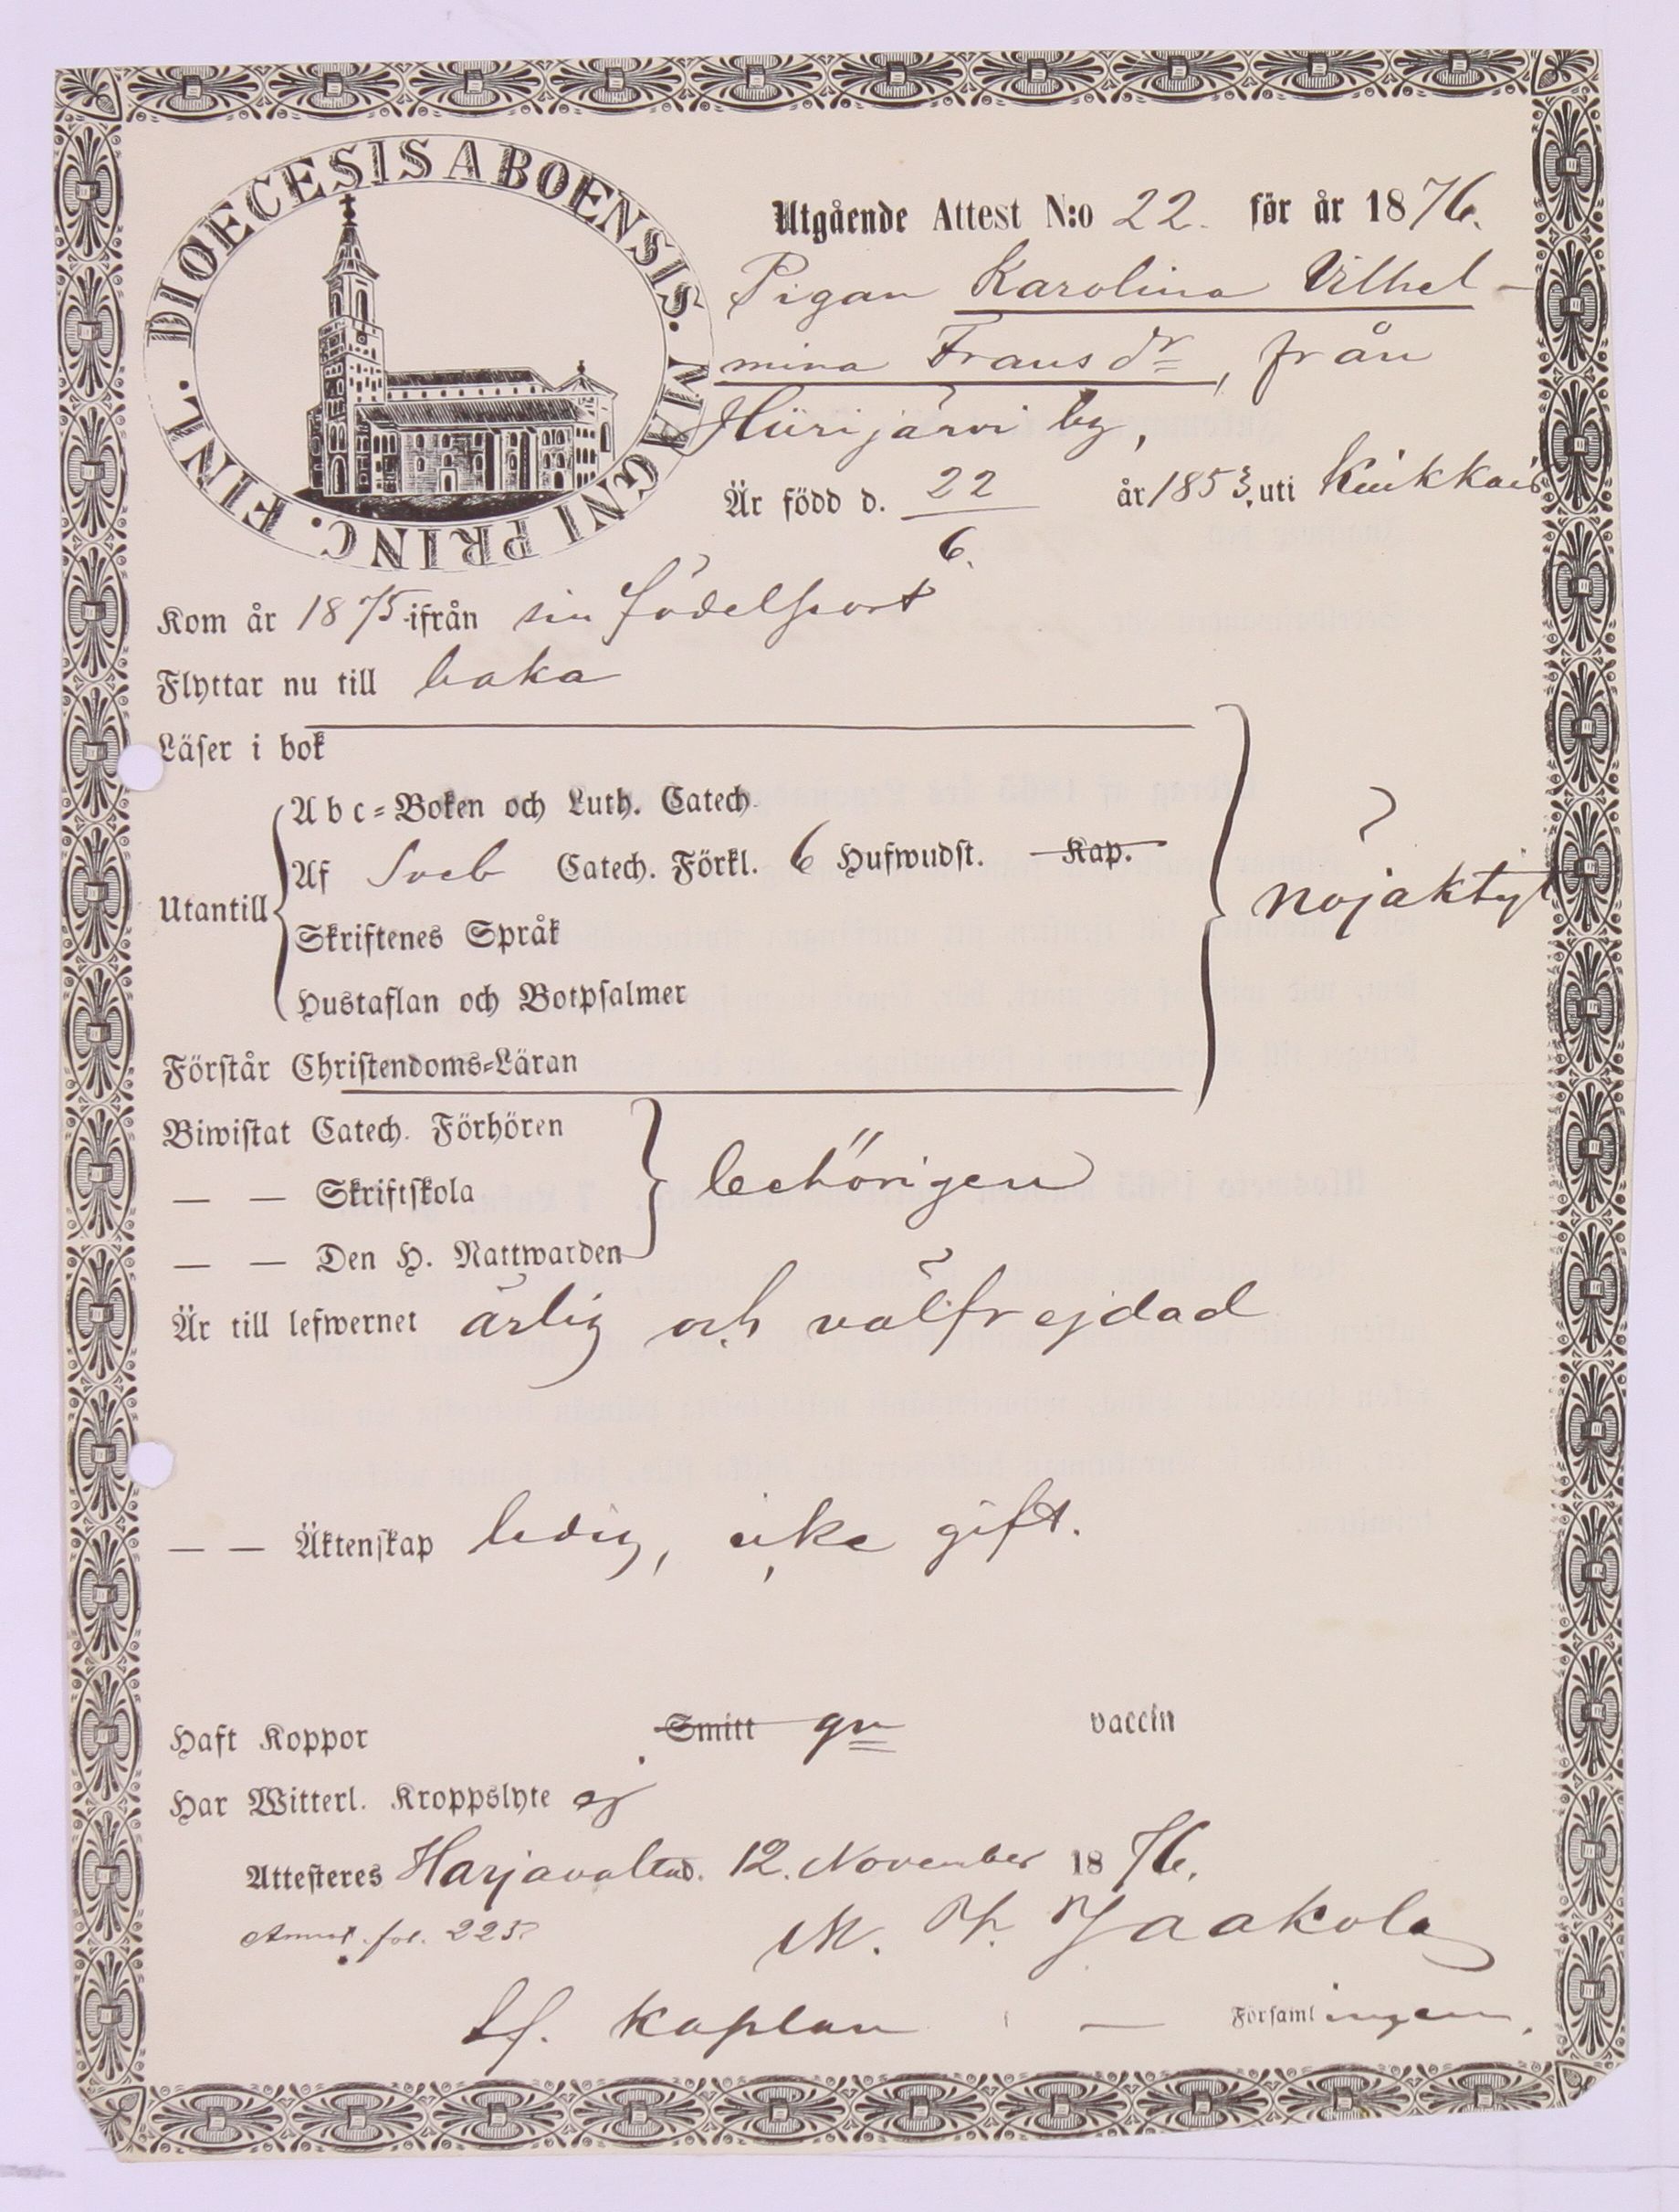 DIOECESIS ABOENSIS. MAGNI PRINC. FINL.
Utgående Attest N:o 22. för år 1876.
Pigan Karolina Vilhel-
mina Fransdr, från
Hiirijärvi by,
Är född d. 22/6. år 1853, uti
Kom år 1875 ifrån sin födelseort
Flyttar nu till baka
Läser i bok
Abc=Boken och Luth. Catech.
Af Sveb Catech. Förkl. 6 Hufwudst. Kap.
Utantill
nöjaktigt
Skriftenes Språk
Hustaflan och Botpsalmer
Förstår Christendoms=Läran
Biwistat Catech. Förhören
— — Skriftskola behörigen
— — Den H. Nattwarden
Är till lefwernet ärlig och välfrejdad
— — Äktenskap ledig, icke gift.
Haft Koppor Smitt gm vaccin
Har Witterl. Kroppslyte ej
Attesteres Harjavalta d. 12. November 1876.
Annot. fol. 225
M. Jaakola
kaplan — Församlingen.